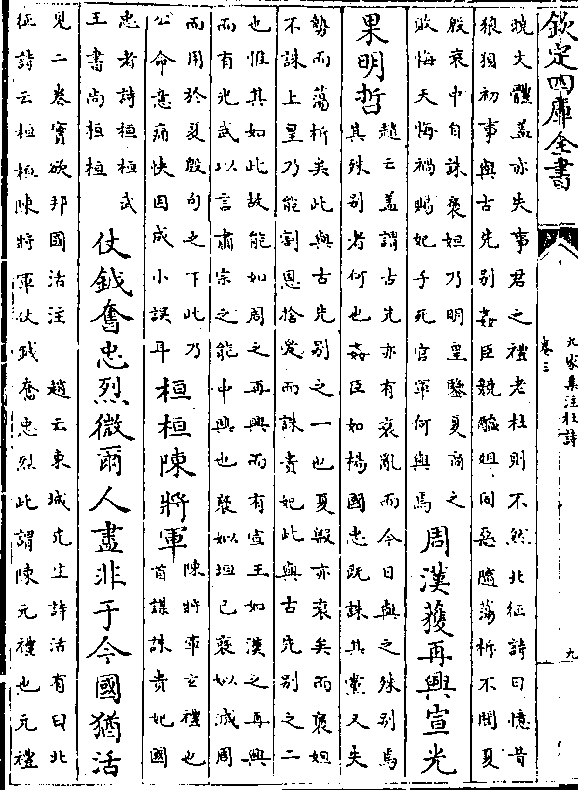 欽定四庫全書
九家集注杜詩
卷三
九
曉文體蓋亦失事君之禮老杜則不然北征詩曰憶昔
狼狽初事與古先別姦臣競醢俎同惡隨蕩析不聞夏
殷衰中自誅褒妲乃明皇鑒夏商之
敗悔天悔禍賜妃子死官軍何與焉
周漢獲再興宣光
果明哲
趙云蓋謂古先亦有衰亂而今日與之殊別焉
其殊別者何也姦臣如楊國忠既誅其黨又失
勢而蕩析矣此與古先別之一也夏殷亦衰矣而褒妲
不誅上皇乃能割恩捨愛而誅貴妃此與古先別之二
也惟其如此故能如周之再興而有宣王如漢之再興
而有光武以言肅宗之能中興也褒姒妲已褒姒滅周
而用於夏殷句之下此乃
公命意痛快因成小誤耳
桓桓陳將軍
陳將軍玄禮也
首謀誅貴妃國
忠者詩桓桓武
王書尚桓桓
仗鉞奮忠烈微爾人盡非于今國猶活
見二卷實欲邦國活注 趙云東城先生許活有曰北
征詩云桓桓陳將軍仗鉞奮忠烈此謂陳元禮也元禮